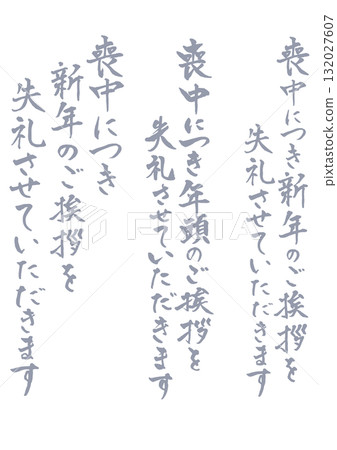 喪中につき新年のご挨拶を
失礼させていただきます
喪中につき年頭のご挨拶を
失礼させていただきます
喪中につき
新年のご挨拶を
失礼させていただきます
PIXTA
132027607